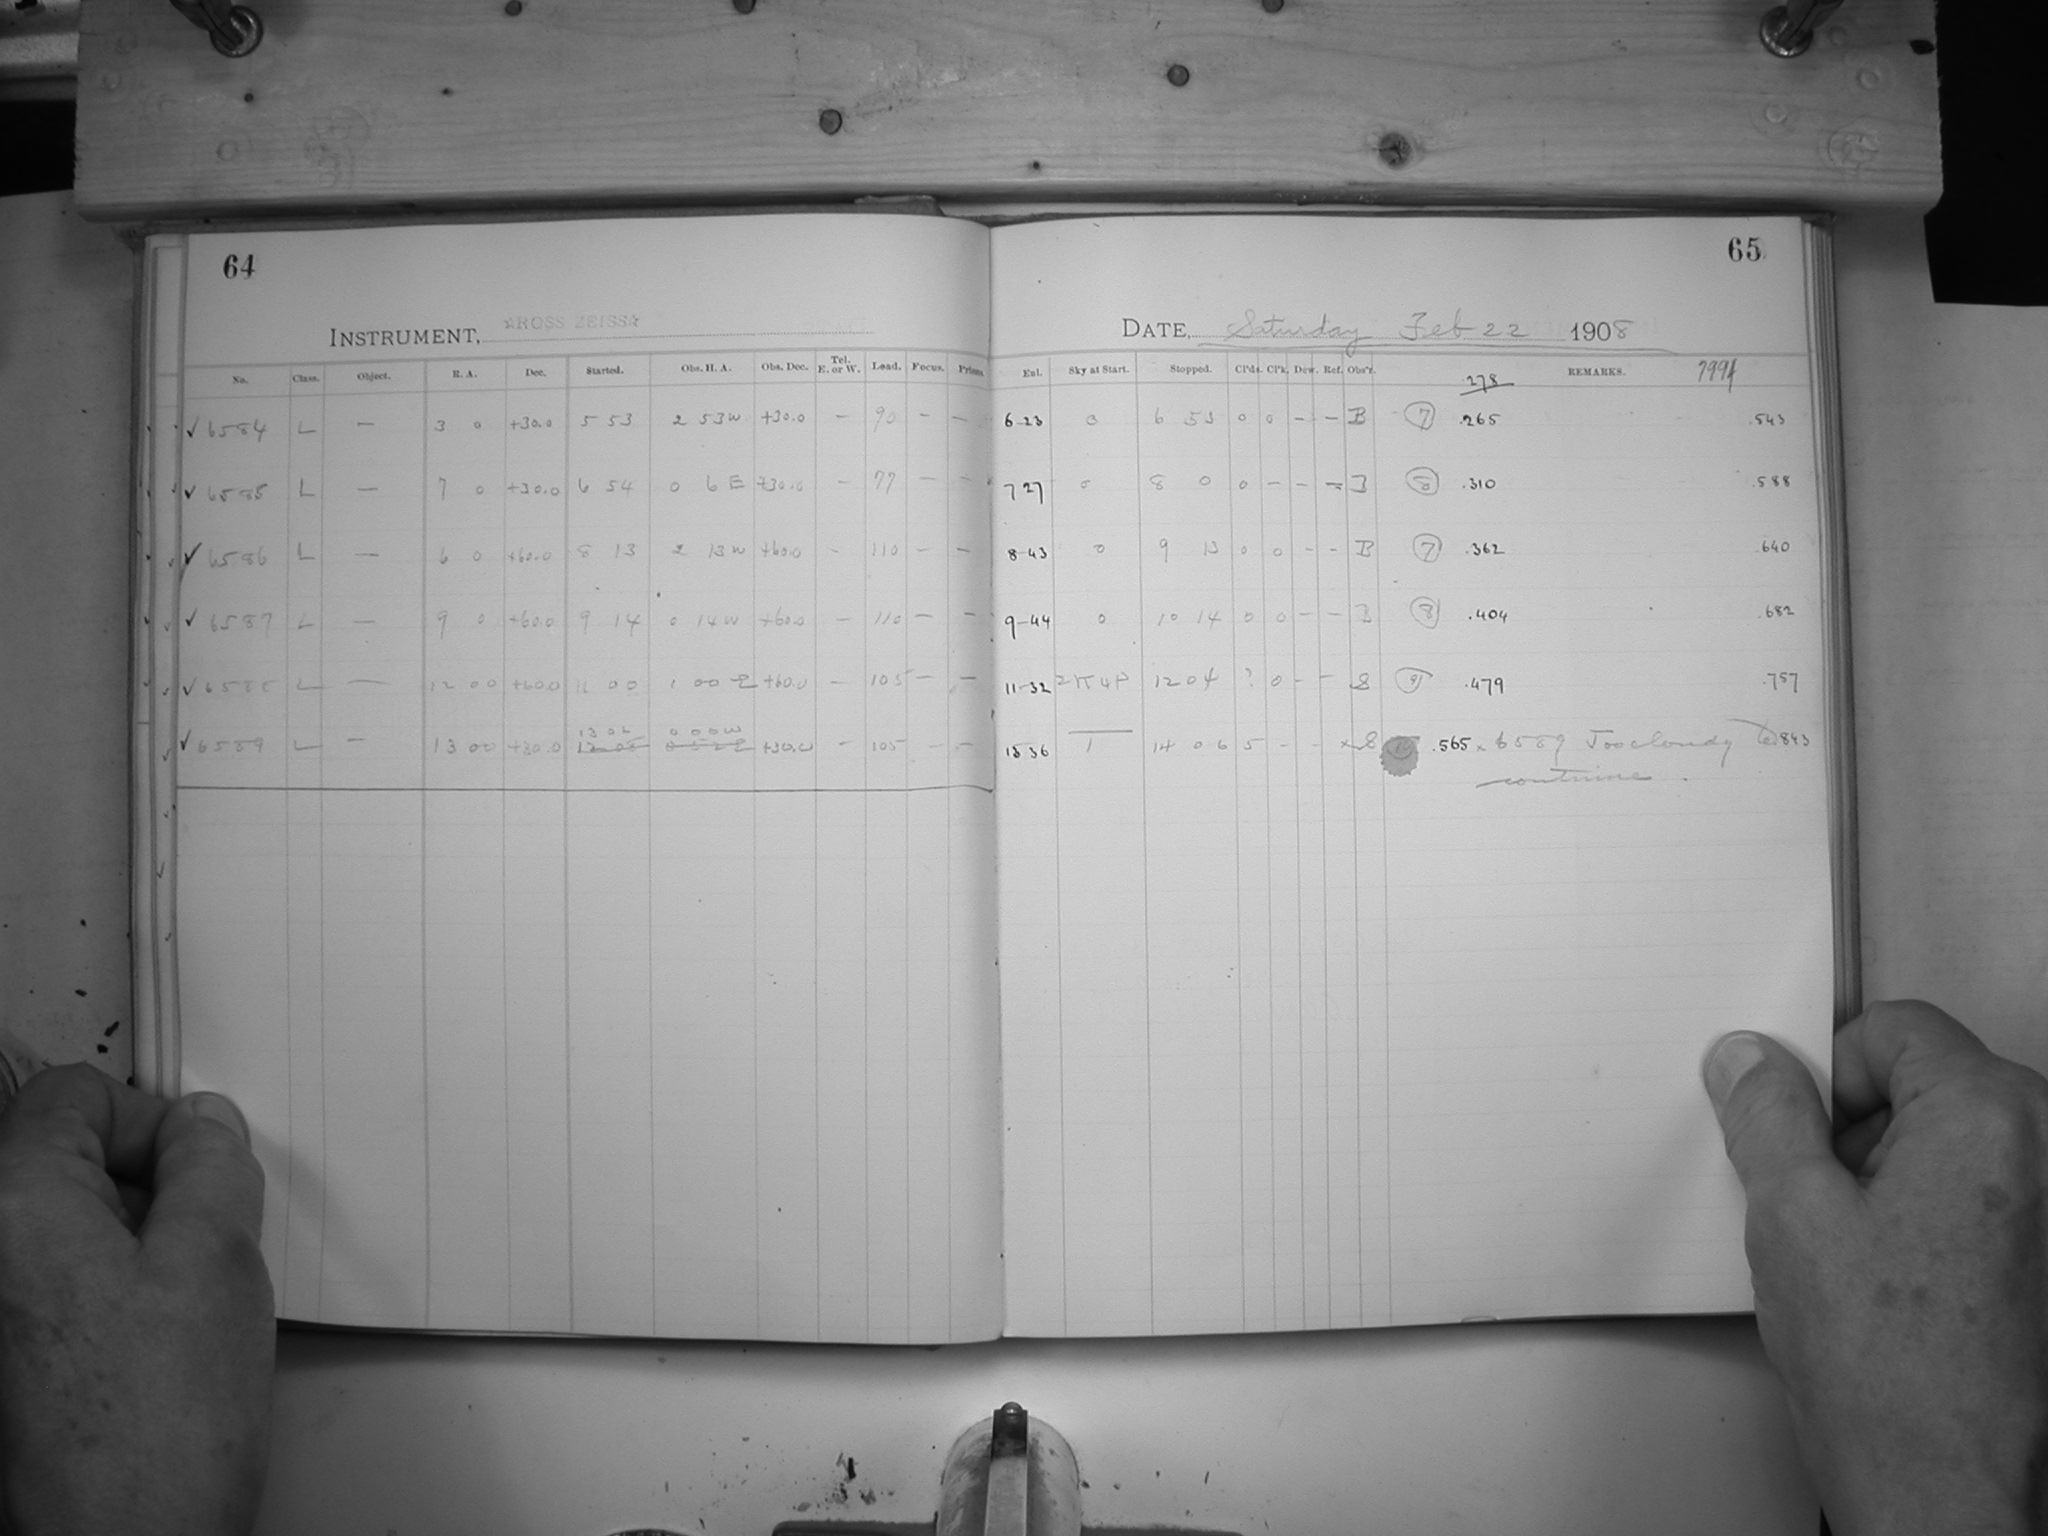 64
INSTRUMENT, ☆ROSS ZEISS☆
No. Class. Object. R. A. Dec. Started. Obs. H. A. Obs. Dec. Tel. E. or W. Load. Focus. Prisms.
✓ 6584 L — 3 0 +30.0 5 53 2 53W +30.0 — 90 — —
✓ 6585 L — 7 0 +30.0 6 54 0 6 E +30.0 — 77 — —
✓ 6586 L — 6 0 +60.0 8 13 2 13W +60.0 - 110 — —
✓ 6587 L — 9 0 +60.0 9 14 0 14W +60.0 — 110 — —
✓ L — 12 00 +60.0 11 00 1 00 E +60.0 — 105 — —
13 06 0 00W
✓ 6589 L — 13 00 +30.0 +30.0 — 105 — —
65
DATE, Saturday Feb 22 1908
Eul. Sky at Start. Stopped. Cl'ds. Cl'k. Dew. Ref. Obs'r. .278 REMARKS.
6-23 0 6 53 0 0 — — B 7 .265 .543
7 27 0 8 0 0 — — 8 .310 .588
8-43 0 9 13 0 0 - - B 7 .362 .640
9-44 0 10 14 0 0 — — B 8 .404 .682
11-32 12 04 ? 0 - - S 9 .479 .757
1 14 06 5 - - x S .565 x 6589 Too cloudy to .843
continue.